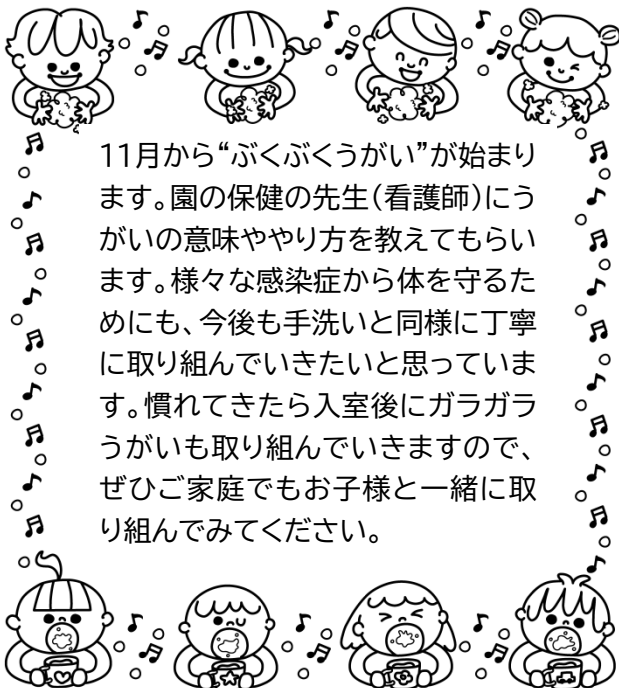 11月から“ぶくぶくうがい”が始まり
ます。園の保健の先生(看護師)にう
がいの意味ややり方を教えてもらい
ます。様々な感染症から体を守るた
めにも、今後も手洗いと同様に丁寧
に取り組んでいきたいと思っていま
す。慣れてきたら入室後にガラガラ
うがいも取り組んでいきますので、
ぜひご家庭でもお子様と一緒に取
り組んでみてください。